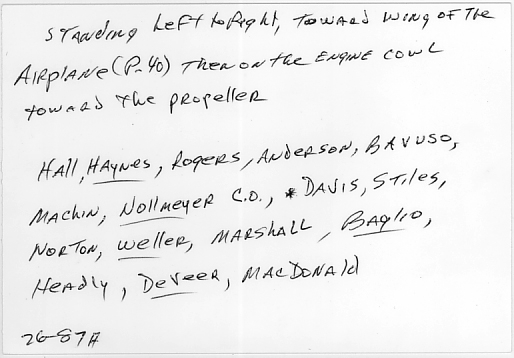 STANDING LEFT to Right, TOWARD WING OF THE
AIRPLANE (P-40) THEN ON THE ENGINE COWL
TOWARD THE PROPELLER
HALL, HAYNES, ROGERS, ANDERSON, BAVUSO,
MACHIN, NOLLMEYER C.O., * DAVIS, STILES,
NORTON, WELLER, MARSHALL, BAGLIO,
HEADLY, DeVEER, MACDONALD
26-87A